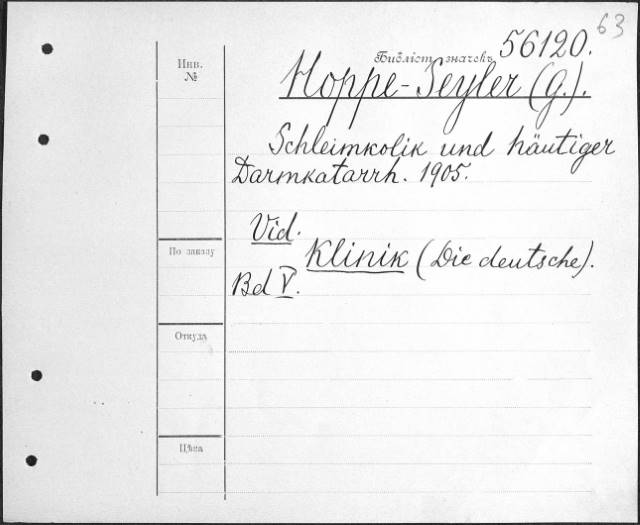 63
Инв.
№
Библіот. значекъ 56120.
Hoppe-Seyler (G.).
Schleimkolik und häutiger
Darmkatarrh. 1905.
Vid.
По заказу
Klinik (Die deutsche).
Bd V.
Откуда
Цѣна